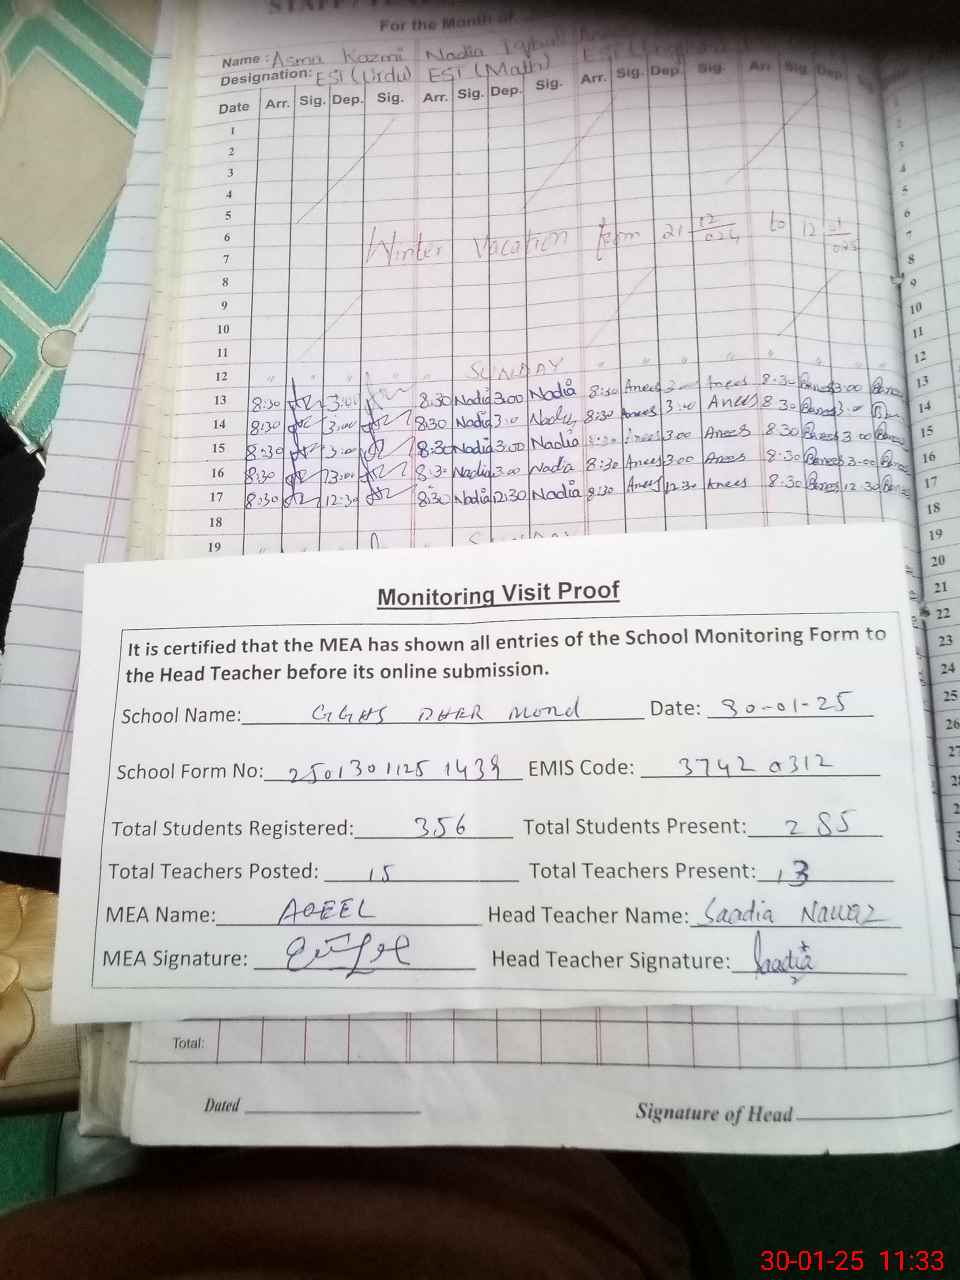 For the Month of
Name : Asma Kazmi Nadia Iqbal
Designation: EST (Urdu) EST (Math)
Date Arr. Sig. Dep. Sig. Arr. Sig. Dep. Sig. Arr. Sig. Dep. Sig. Arr. Sig. Dep.
1
2
3
4
5
6
Winter Vacation from 21 12/024 to 12 01/025
7
8
9
10
11
12 " " " SUNDAY " " " " "
13 8:30 3:00 8:30 Nadia 3:00 Nadia 8:30 Anees 3 Anees 8:30 3:00
14 8:30 3:00 8:30 Nadia 3:00 Nadia 8:30 Anees 3:00 Anees 8:30 3:00
15 8:30 3:00 8:30 Nadia 3:00 Nadia 8:30 Anees 3:00 Anees 8:30 3:00
16 8:30 3:00 8:30 Nadia 3:00 Nadia 8:30 Anees 3:00 Anees 8:30 3:00
17 8:30 12:30 8:30 Nadia 12:30 Nadia 8:30 Anees 12:30 Anees 8:30 12:30
18
19
6
7
8
9
10
11
12
13
14
15
16
17
18
19
20
21
22
23
24
25
26
27
Monitoring Visit Proof
It is certified that the MEA has shown all entries of the School Monitoring Form to
the Head Teacher before its online submission.
School Name: GGHS DHER Mond Date: 30-01-25
School Form No: 25013011251439 EMIS Code: 37420312
Total Students Registered: 356 Total Students Present: 285
Total Teachers Posted: 15 Total Teachers Present: 13
MEA Name: AQEEL Head Teacher Name: Saadia Nawaz
MEA Signature: Head Teacher Signature: Saadia
Total:
Dated Signature of Head
30-01-25 11:33